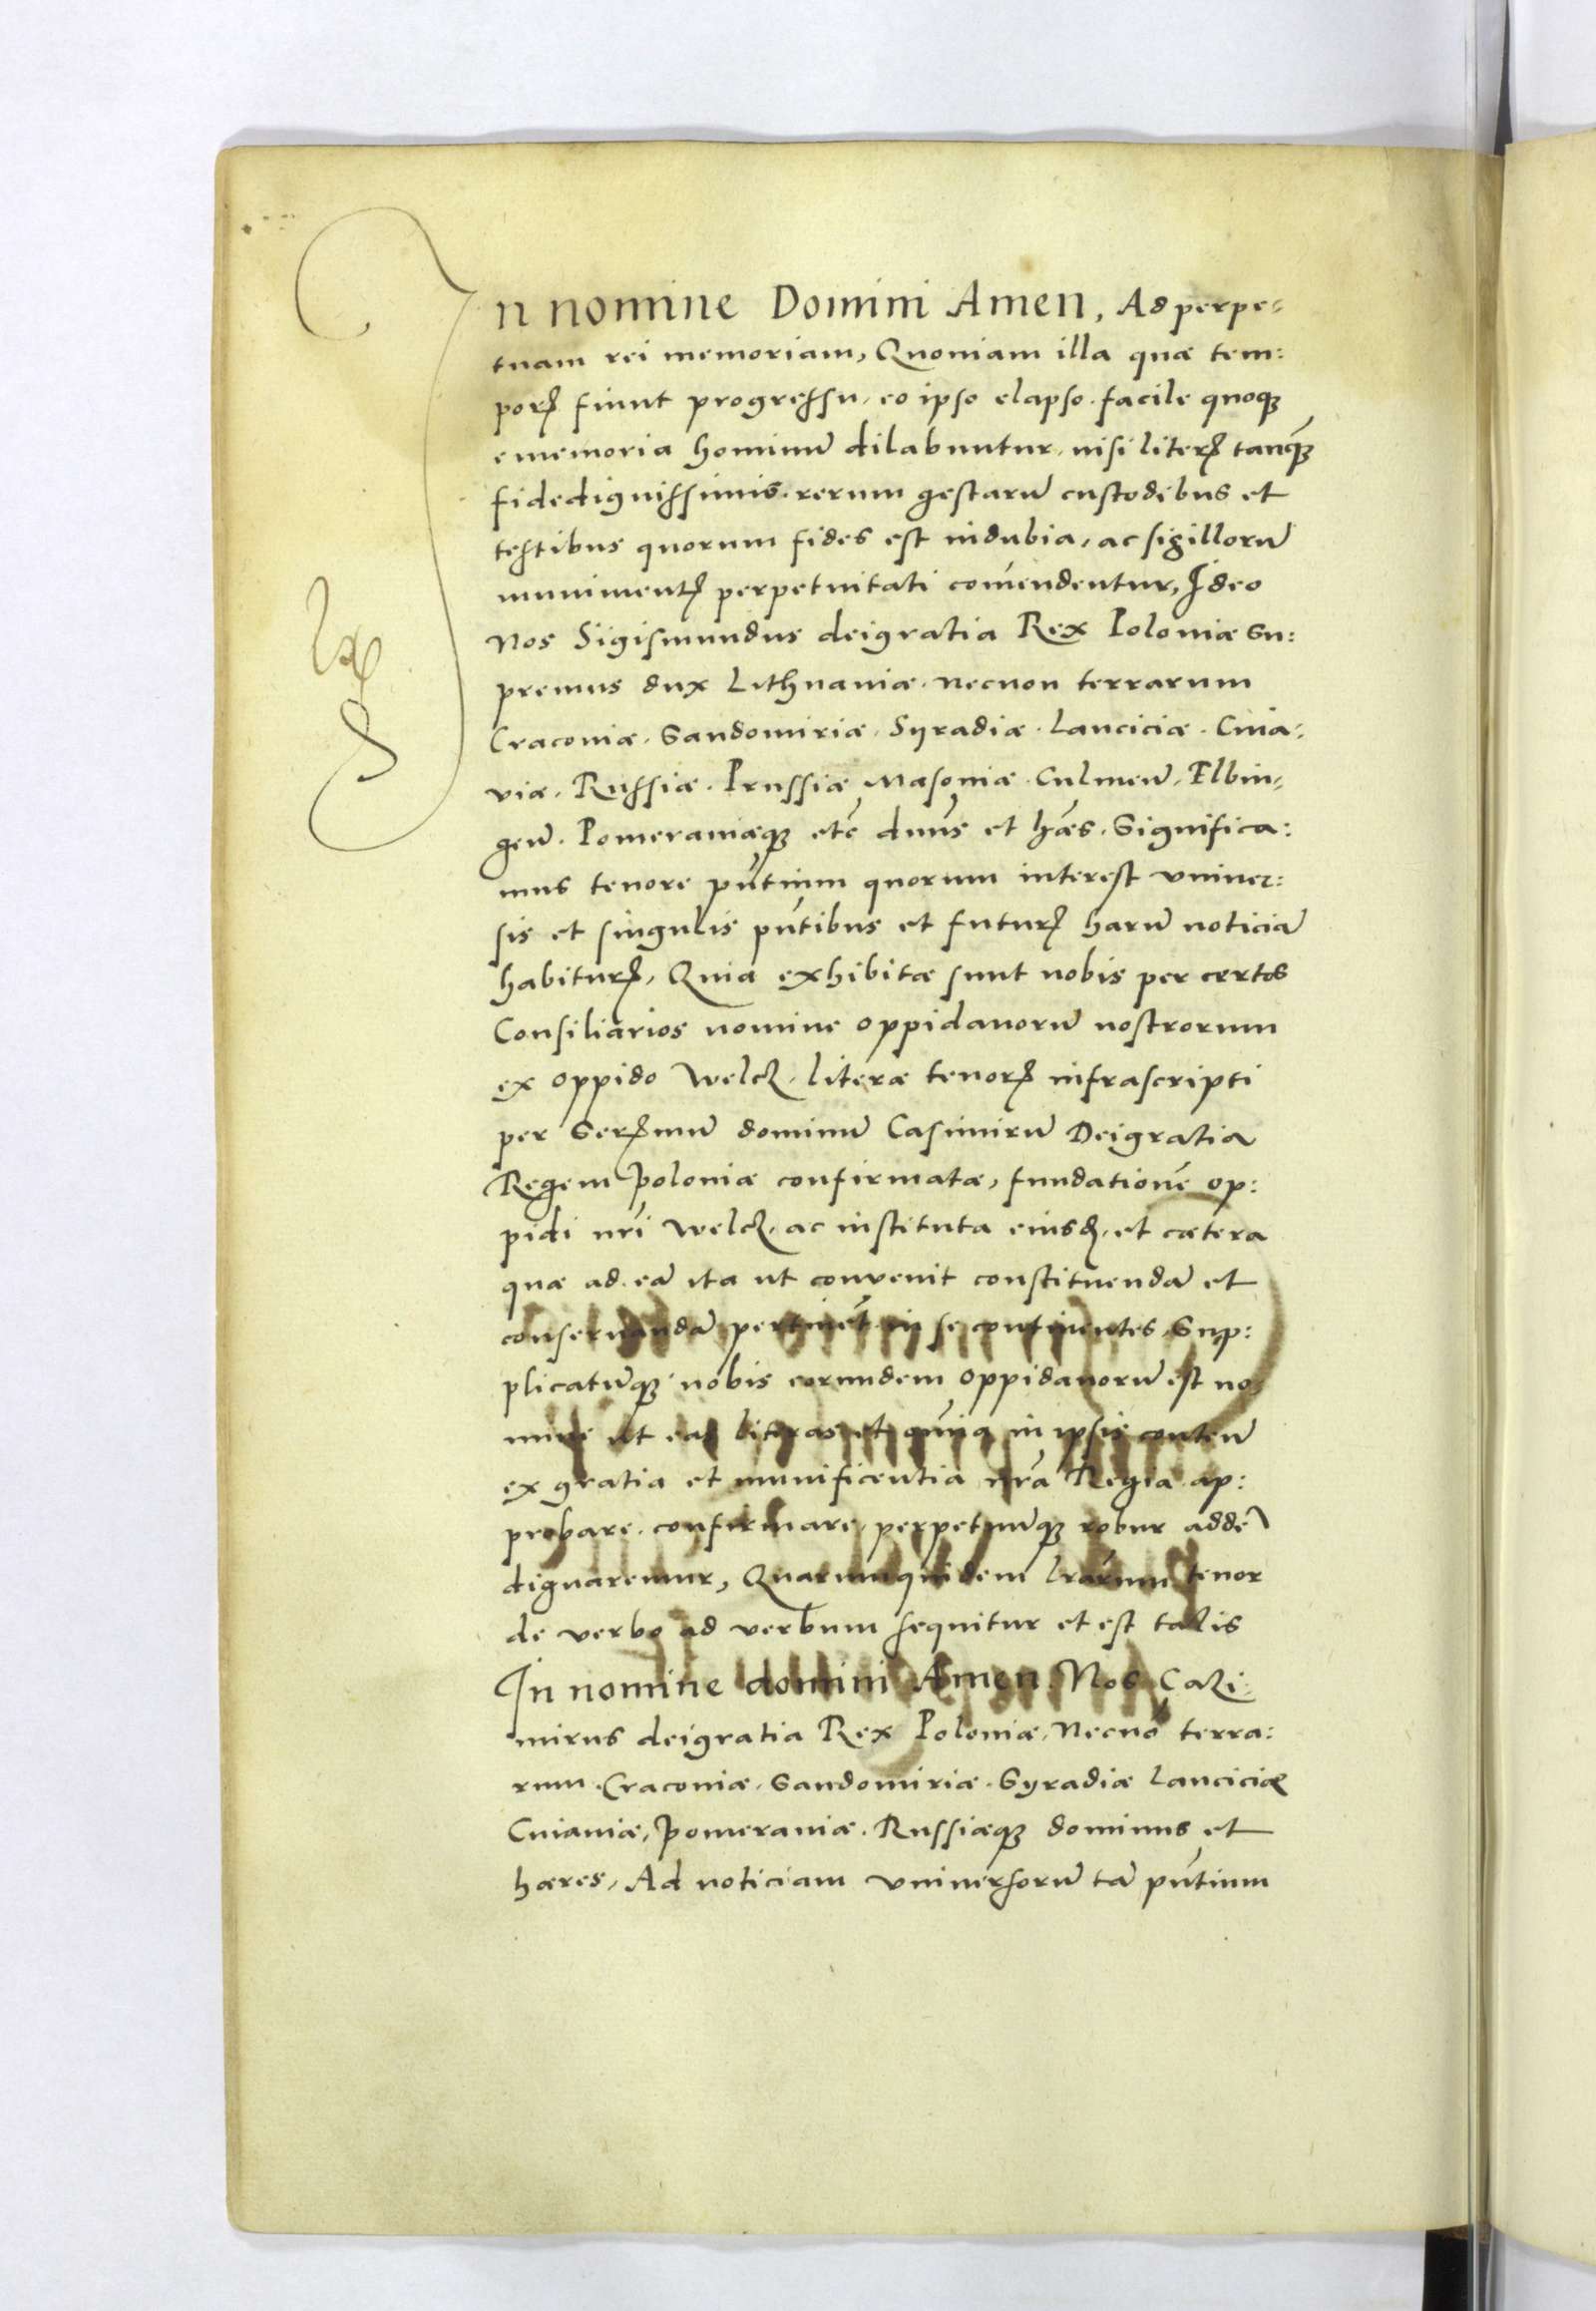 In nomine Domini Amen, Ad perpe-
tuam rei memoriam, Quoniam illa quæ tem:
porꝭ fiunt progressu, eo ipso elapso facile quoqꝫ
e memoria hominū dilabuntur, nisi literꝭ tanq̃ꝫ
fidedignissimis rerum gestarū custodibus et
testibus quorum fides est indubia, ac sigillorū
munimentꝭ perpetuitati com̄endentur, Ideo
Nos Sigismundus deigratia Rex Poloniæ Su:
premus dux Lithuaniæ necnon terrarum
Cracoviæ. Sandomiriæ. Syradiæ. Lanciciæ. Cuia:
viæ. Russiæ. Prussiæ Masoviæ. Culmeñ. Elbin-
geñ. Pomeraniæqꝫ etc̄ dūns et hǣs. Significa:
mus tenore pñtium quorum interest univer:
sis et singulis pñtibus et futurꝭ harū noticiā
habiturꝭ, Quia exhibitæ sunt nobis per certos
Consiliarios nomine oppidanorū nostrorum
ex oppido Welcꝫ, literæ tenorꝭ infrascripti
per Serꝭmū dominū Casimirū Deigratia
Regem Poloniæ confirmatæ, fundationē op:
pidi nr̄i Welcꝫ, ac instituta eiusdꝫ, et cætera
quæ ad eā ita ut convenit constituendā et
conservandā pertinēt in se continentes, Sup:
plicatūqꝫ nobis eorundem oppidanorū est no
mine ut eas literas et om̄ia in ipsis conteñ
ex gratia et munificentia nr̄a Regia ap:
probare. confirmare, perpetuūqꝫ robur addē
dignaremur, Quarumquidem lr̄arum tenor
de verbo ad verbum sequitur et est talis
In nomine domini Amen. Nos Cazi:
mirus deigratia Rex Poloniæ, Necnō terra:
rum. Cracoviæ. Sandomiriæ. Syradiæ Lanciciæ
Cuiaviæ, Pomeraniæ. Russiæqꝫ dominus et
hæres, Ad noticiam universorū tā pñtium